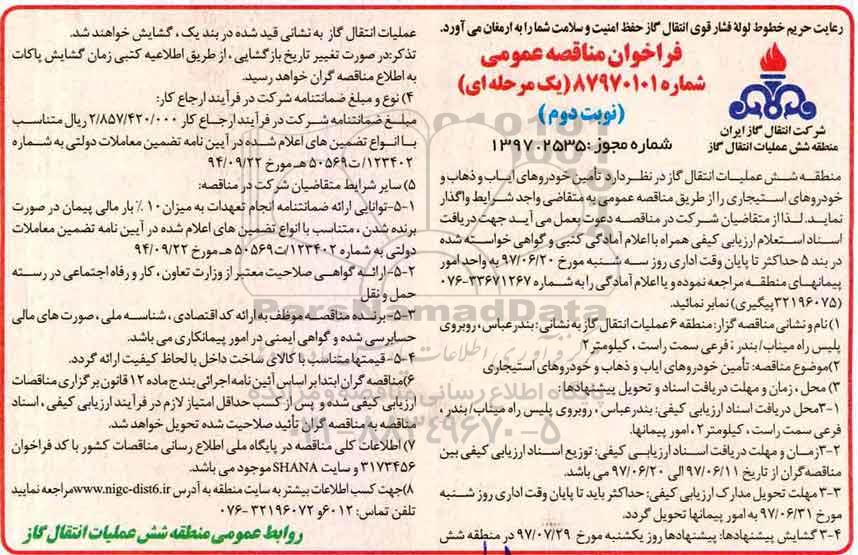 رعایت حریم خطوط لوله فشار قوی انتقال گاز حفظ امنیت و سلامت شما را به ارمغان می آورد.
فراخوان مناقصه عمومی
شماره ۸۷۹۷۰۱۰۱ (یک مرحله ای)
(نوبت دوم)
شماره مجوز: ۱۳۹۷.۲۵۳۵
شرکت انتقال گاز ایران
منطقه شش عملیات انتقال گاز
منطقه شش عملیات انتقال گاز در نظر دارد تأمین خودروهای ایاب و ذهاب و
خودروهای استیجاری را از طریق مناقصه عمومی به متقاضی واجد شرایط واگذار
نماید. لذا از متقاضیان شرکت در مناقصه دعوت بعمل می آید جهت دریافت
اسناد استعلام ارزیابی کیفی همراه با اعلام آمادگی کتبی و گواهی خواسته شده
در بند ۵ حداکثر تا پایان وقت اداری روز سه شنبه مورخ ۹۷/۰۶/۲۰ به واحد امور
پیمانهای منطقه مراجعه نموده و یا اعلام آمادگی را به شماره ۳۳۶۷۱۲۶۷-۰۷۶
(۳۲۱۹۶۰۷۵پیگیری) نمابر نمائید.
۱)نام و نشانی مناقصه گزار: منطقه ۶ عملیات انتقال گاز به نشانی: بندرعباس، روبروی
پلیس راه میناب/ بندر، فرعی سمت راست، کیلومتر ۲
۲)موضوع مناقصه: تأمین خودروهای ایاب و ذهاب و خودروهای استیجاری
۳) محل، زمان و مهلت دریافت اسناد و تحویل پیشنهادها:
۳-۱محل دریافت اسناد ارزیابی کیفی: بندرعباس، روبروی پلیس راه میناب/ بندر،
فرعی سمت راست، کیلومتر ۲، امور پیمانها.
۳-۲زمان و مهلت دریافت اسناد ارزیابی کیفی: توزیع اسناد ارزیابی کیفی بین
مناقصه گران از تاریخ ۹۷/۰۶/۱۱ الی ۹۷/۰۶/۲۰ می باشد.
۳-۳ مهلت تحویل مدارک ارزیابی کیفی: حداکثر باید تا پایان وقت اداری روز شنبه
مورخ ۹۷/۰۶/۳۱ به امور پیمانها تحویل گردد.
۳-۴ گشایش پیشنهادها: پیشنهادها روز یکشنبه مورخ ۹۷/۰۷/۲۹ در منطقه شش
عملیات انتقال گاز به نشانی قید شده در بند یک، گشایش خواهند شد.
تذکر:در صورت تغییر تاریخ بازگشایی، از طریق اطلاعیه کتبی زمان گشایش پاکات
به اطلاع مناقصه گران خواهد رسید.
۴) نوع و مبلغ ضمانتنامه شرکت در فرآیند ارجاع کار:
مبلغ ضمانتنامه شرکت در فرآیند ارجاع کار ۲/۸۵۷/۴۲۰/۰۰۰ ریال متناسب
با انواع تضمین های اعلام شده در آیین نامه تضمین معاملات دولتی به شماره
۱۲۳۴۰۲/ت۵۰۵۶۹هـ مورخ ۹۴/۰۹/۲۲
۵) سایر شرایط متقاضیان شرکت در مناقصه:
۵-۱-توانایی ارائه ضمانتنامه انجام تعهدات به میزان ۱۰٪ بار مالی پیمان در صورت
برنده شدن، متناسب با انواع تضمین های اعلام شده در آیین نامه تضمین معاملات
دولتی به شماره ۱۲۳۴۰۲/ت۵۰۵۶۹هـ مورخ ۹۴/۰۹/۲۲
۵-۲-ارائه گواهی صلاحیت معتبر از وزارت تعاون، کار و رفاه اجتماعی در رسته
حمل و نقل
۵-۳-برنده مناقصه موظف به ارائه کد اقتصادی، شناسه ملی، صورت های مالی
حسابرسی شده و گواهی ایمنی در امور پیمانکاری می باشد.
۵-۴-قیمتها متناسب با کالای ساخت داخل با لحاظ کیفیت ارائه گردد.
۶)مناقصه گران ابتدا بر اساس آئین نامه اجرائی بند ج ماده ۱۲ قانون برگزاری مناقصات
ارزیابی کیفی شده و پس از کسب حداقل امتیاز لازم در فرآیند ارزیابی کیفی، اسناد
مناقصه به مناقصه گران تأئید صلاحیت شده تحویل خواهد شد.
۷) اطلاعات کلی مناقصه در پایگاه ملی اطلاع رسانی مناقصات کشور با کد فراخوان
۳۱۷۳۴۵۶ و سایت SHANA موجود می باشد.
۸)جهت کسب اطلاعات بیشتر به سایت منطقه به آدرس www.nigc-dist6.ir مراجعه نمایید
تلفن تماس: ۶۰۱۲و ۳۲۱۹۶۰۷۲-۰۷۶
روابط عمومی منطقه شش عملیات انتقال گاز